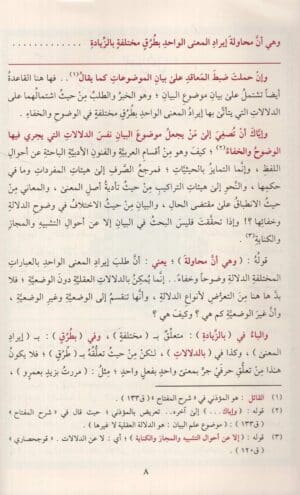 وهي أنَّ محاولةَ إيرادِ المعنى الواحدِ بطُرُقٍ مختلفةٍ بالزِّيادةِ . . . . . . . . . . . . .
وإنْ حملتَ ضبطَ المَعاقدِ علىٰ بيانِ الموضوعاتِ كما يقالُ(١).. فها هنا القاعدةُ
أيضاً تشتملُ علىٰ بيانِ موضوعِ البيانِ ؛ وهو الخبرُ والطلبُ مِنْ حيثُ اشتمالُهما على
الدلالاتِ التي يتأتَّىٰ بها إيرادُ المعنى الواحدِ بطُرُقٍ مختلفةٍ في الوضوحِ والخفاءِ .
وإيَّاكَ أنْ تُصغِيَ إلىٰ مَنْ يجعلُ موضوعَ البيانِ نفسَ الدلالاتِ التي يجري فيها
الوضوحُ والخفاءُ(٢) ؛ كيفَ وهو مِنْ أقسامِ العربيَّةِ والفنونِ الأدبيَّةِ الباحثةِ عن أحوالِ
اللفظِ ، وإنَّما التمايزُ بالحيثيَّاتِ ؛ فمرجعُ الصَّرفِ إلىٰ هيئاتِ المفرداتِ وما في
حكمِها ، والنَّحوِ إلىٰ هيئاتِ التراكيبِ مِنْ حيثُ تأديةُ أصلِ المعنى ، والمعاني مِنْ
حيثُ الانطباقُ علىٰ مقتضى الحالِ ، والبيانِ مِنْ حيثُ الاختلافُ في وضوحِ الدلالةِ
وخفائِها ؟! وإذا تحقَّقتَ فليسَ البحثُ في البيانِ إلا عن أحوالِ التشبيهِ والمجازِ
والكنايةِ(٣) .
قولُهُ : ( وهي أنَّ محاولةَ ) ؛ يعني : أنَّ طلبَ إيرادِ المعنى الواحدِ بالعباراتِ
المختلفةِ الدلالةِ وضوحاً وخفاءً.. إنَّما يُمكِنُ بالدلالاتِ العقليَّةِ دونَ الوضعيَّةِ ؛ فلا
بدَّ ها هنا مِنَ التعرُّضِ لأنواعِ الدلالةِ ، وأنَّها تنقسمُ إلى الوضعيَّةِ وغيرِ الوضعيَّةِ ،
وأنَّ غيرَ الوضعيَّةِ كم هي ؟ وكيفَ هي ؟
والباءُ في ( بالزِّيادةِ ) : متعلِّقٌ بـ ( مختلفةٍ ) ، وفي ( بطُرُقٍ ) : بـ ( إيرادِ
المعنى ) ، وكذا في ( بالدلالاتِ ) ، لكنْ مِنْ حيثُ تعلُّقُهُ بـ ( طُرُقٍ ) ؛ فلا يكونُ
هذا مِنْ تعلُّقِ حرفَي جرٍّ بمعنىً واحدٍ بفعلٍ واحدٍ ؛ مثلُ : ( مررتُ بزيدٍ بعمرٍو ) ،
(١) القائل : هو المؤذني في « شرح المفتاح » ( ق١٣٣ ) .
(٢) قوله : ( وإياك . . . ) إلىٰ آخره . . تعريض بالمؤذني ؛ حيث قال في « شرح المفتاح »
( ق١٣٣ ) : ( موضوع علم البيان : هو الدلالة العقلية لا غيرها ) .
(٣) قوله : ( إلا عن أحوال التشبيه والمجاز والكناية ) ؛ أي : لا عن الدلالات . « قوجحصاري »
( ق١٢٠ ) .
٨